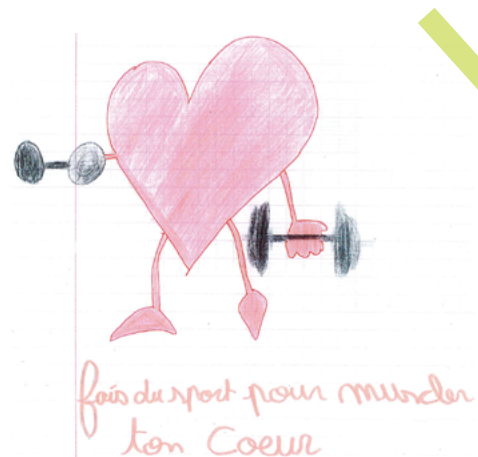 fais du sport pour muscler
ton Coeur